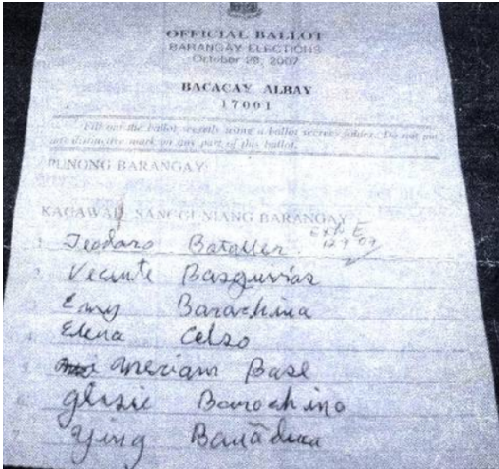 OFFICIAL BALLOT
BARANGAY ELECTIONS
October 29, 2007
BACACAY ALBAY
17001
Fill out the ballot secretly using a ballot secrecy folder. Do not put
any distinctive mark on any part of this ballot.
PUNONG BARANGAY:
KAGAWAD, SANGGUNIANG BARANGAY
Exh. E
12 9 07
1. Teodoro Bataller
2. Vecente Basquinas
3. Emy Barachina
4. Elena Celso
5. Meriam Base
6. glosie Barochino
7. Ying